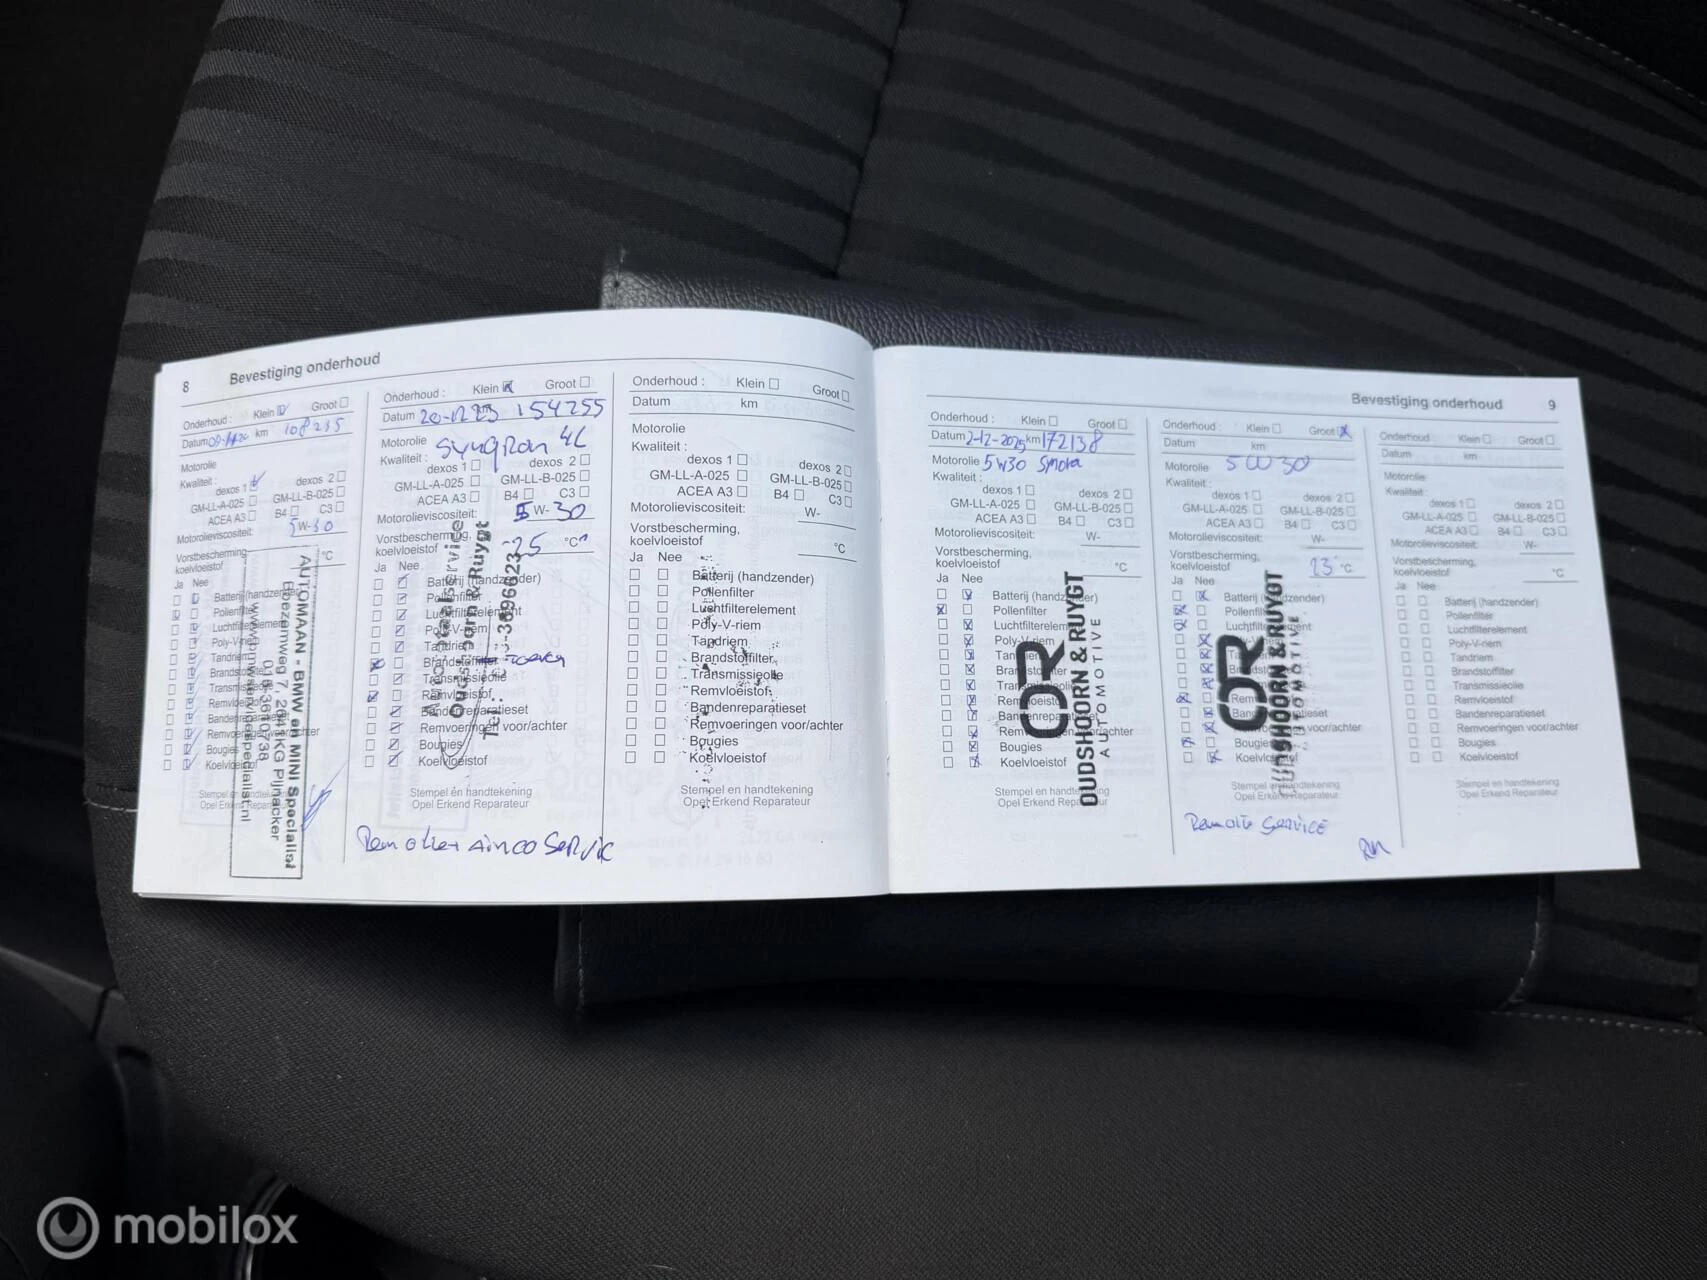 8 Bevestiging onderhoud
Onderhoud : Klein Groot
Datum km 108235
Motorolie
Kwaliteit :
dexos 1 dexos 2
GM-LL-A-025 GM-LL-B-025
ACEA A3 B4 C3
Motorolieviscositeit: 5W-30
Vorstbescherming, koelvloeistof °C
Ja Nee
Batterij (handzender)
Pollenfilter
Luchtfilterelement
Poly-V-riem
Tandriem
Brandstoffilter
Transmissieolie
Remvloeistof
Bandenreparatieset
Remvoeringen voor/achter
Bougies
Koelvloeistof
Stempel en handtekening
Opel Erkend Reparateur
AUTOMAAN - BMW en MINI Specialist
Boezemweg 7, 2641 KG Pijnacker
Onderhoud : Klein Groot
Datum 20-12-23 km 154255
Motorolie
Kwaliteit :
dexos 1 dexos 2
GM-LL-A-025 GM-LL-B-025
ACEA A3 B4 C3
Motorolieviscositeit: 5 W- 30
Vorstbescherming,
koelvloeistof -25 °C
Ja Nee
Batterij (handzender)
Pollenfilter
Luchtfilterelement
Poly-V-riem
Tandriem
Brandstoffilter
Transmissieolie
Remvloeistof
Bandenreparatieset
Remvoeringen voor/achter
Bougies
Koelvloeistof
Stempel en handtekening
Opel Erkend Reparateur
Onderhoud : Klein Groot
Datum km
Motorolie
Kwaliteit :
dexos 1 dexos 2
GM-LL-A-025 GM-LL-B-025
ACEA A3 B4 C3
Motorolieviscositeit: W-
Vorstbescherming,
koelvloeistof °C
Ja Nee
Batterij (handzender)
Pollenfilter
Luchtfilterelement
Poly-V-riem
Tandriem
Brandstoffilter
Transmissieolie
Remvloeistof
Bandenreparatieset
Remvoeringen voor/achter
Bougies
Koelvloeistof
Stempel en handtekening
Opel Erkend Reparateur
Bevestiging onderhoud 9
Onderhoud : Klein Groot
Datum 2-12-2025 km 172138
Motorolie 5W30
Kwaliteit :
dexos 1 dexos 2
GM-LL-A-025 GM-LL-B-025
ACEA A3 B4 C3
Motorolieviscositeit: W-
Vorstbescherming,
koelvloeistof °C
Ja Nee
Batterij (handzender)
Pollenfilter
Luchtfilterelement
Poly-V-riem
Tandriem
Brandstoffilter
Transmissieolie
Remvloeistof
Bandenreparatieset
Remvoeringen voor/achter
Bougies
Koelvloeistof
Stempel en handtekening
Opel Erkend Reparateur
OR
OUDSHOORN & RUYGT
AUTOMOTIVE
Onderhoud : Klein Groot
Datum km
Motorolie 5W30
Kwaliteit :
dexos 1 dexos 2
GM-LL-A-025 GM-LL-B-025
ACEA A3 B4 C3
Motorolieviscositeit: W-
Vorstbescherming,
koelvloeistof °C
Ja Nee
Batterij (handzender)
Pollenfilter
Luchtfilterelement
Poly-V-riem
Tandriem
Brandstoffilter
Transmissieolie
Remvloeistof
Bandenreparatieset
Remvoeringen voor/achter
Bougies
Koelvloeistof
Stempel en handtekening
Opel Erkend Reparateur
OR
OUDSHOORN & RUYGT
AUTOMOTIVE
Onderhoud : Klein Groot
Datum km
Motorolie
Kwaliteit :
dexos 1 dexos 2
GM-LL-A-025 GM-LL-B-025
ACEA A3 B4 C3
Motorolieviscositeit: W-
Vorstbescherming,
koelvloeistof °C
Ja Nee
Batterij (handzender)
Pollenfilter
Luchtfilterelement
Poly-V-riem
Tandriem
Brandstoffilter
Transmissieolie
Remvloeistof
Bandenreparatieset
Remvoeringen voor/achter
Bougies
Koelvloeistof
Stempel en handtekening
Opel Erkend Reparateur
mobilox